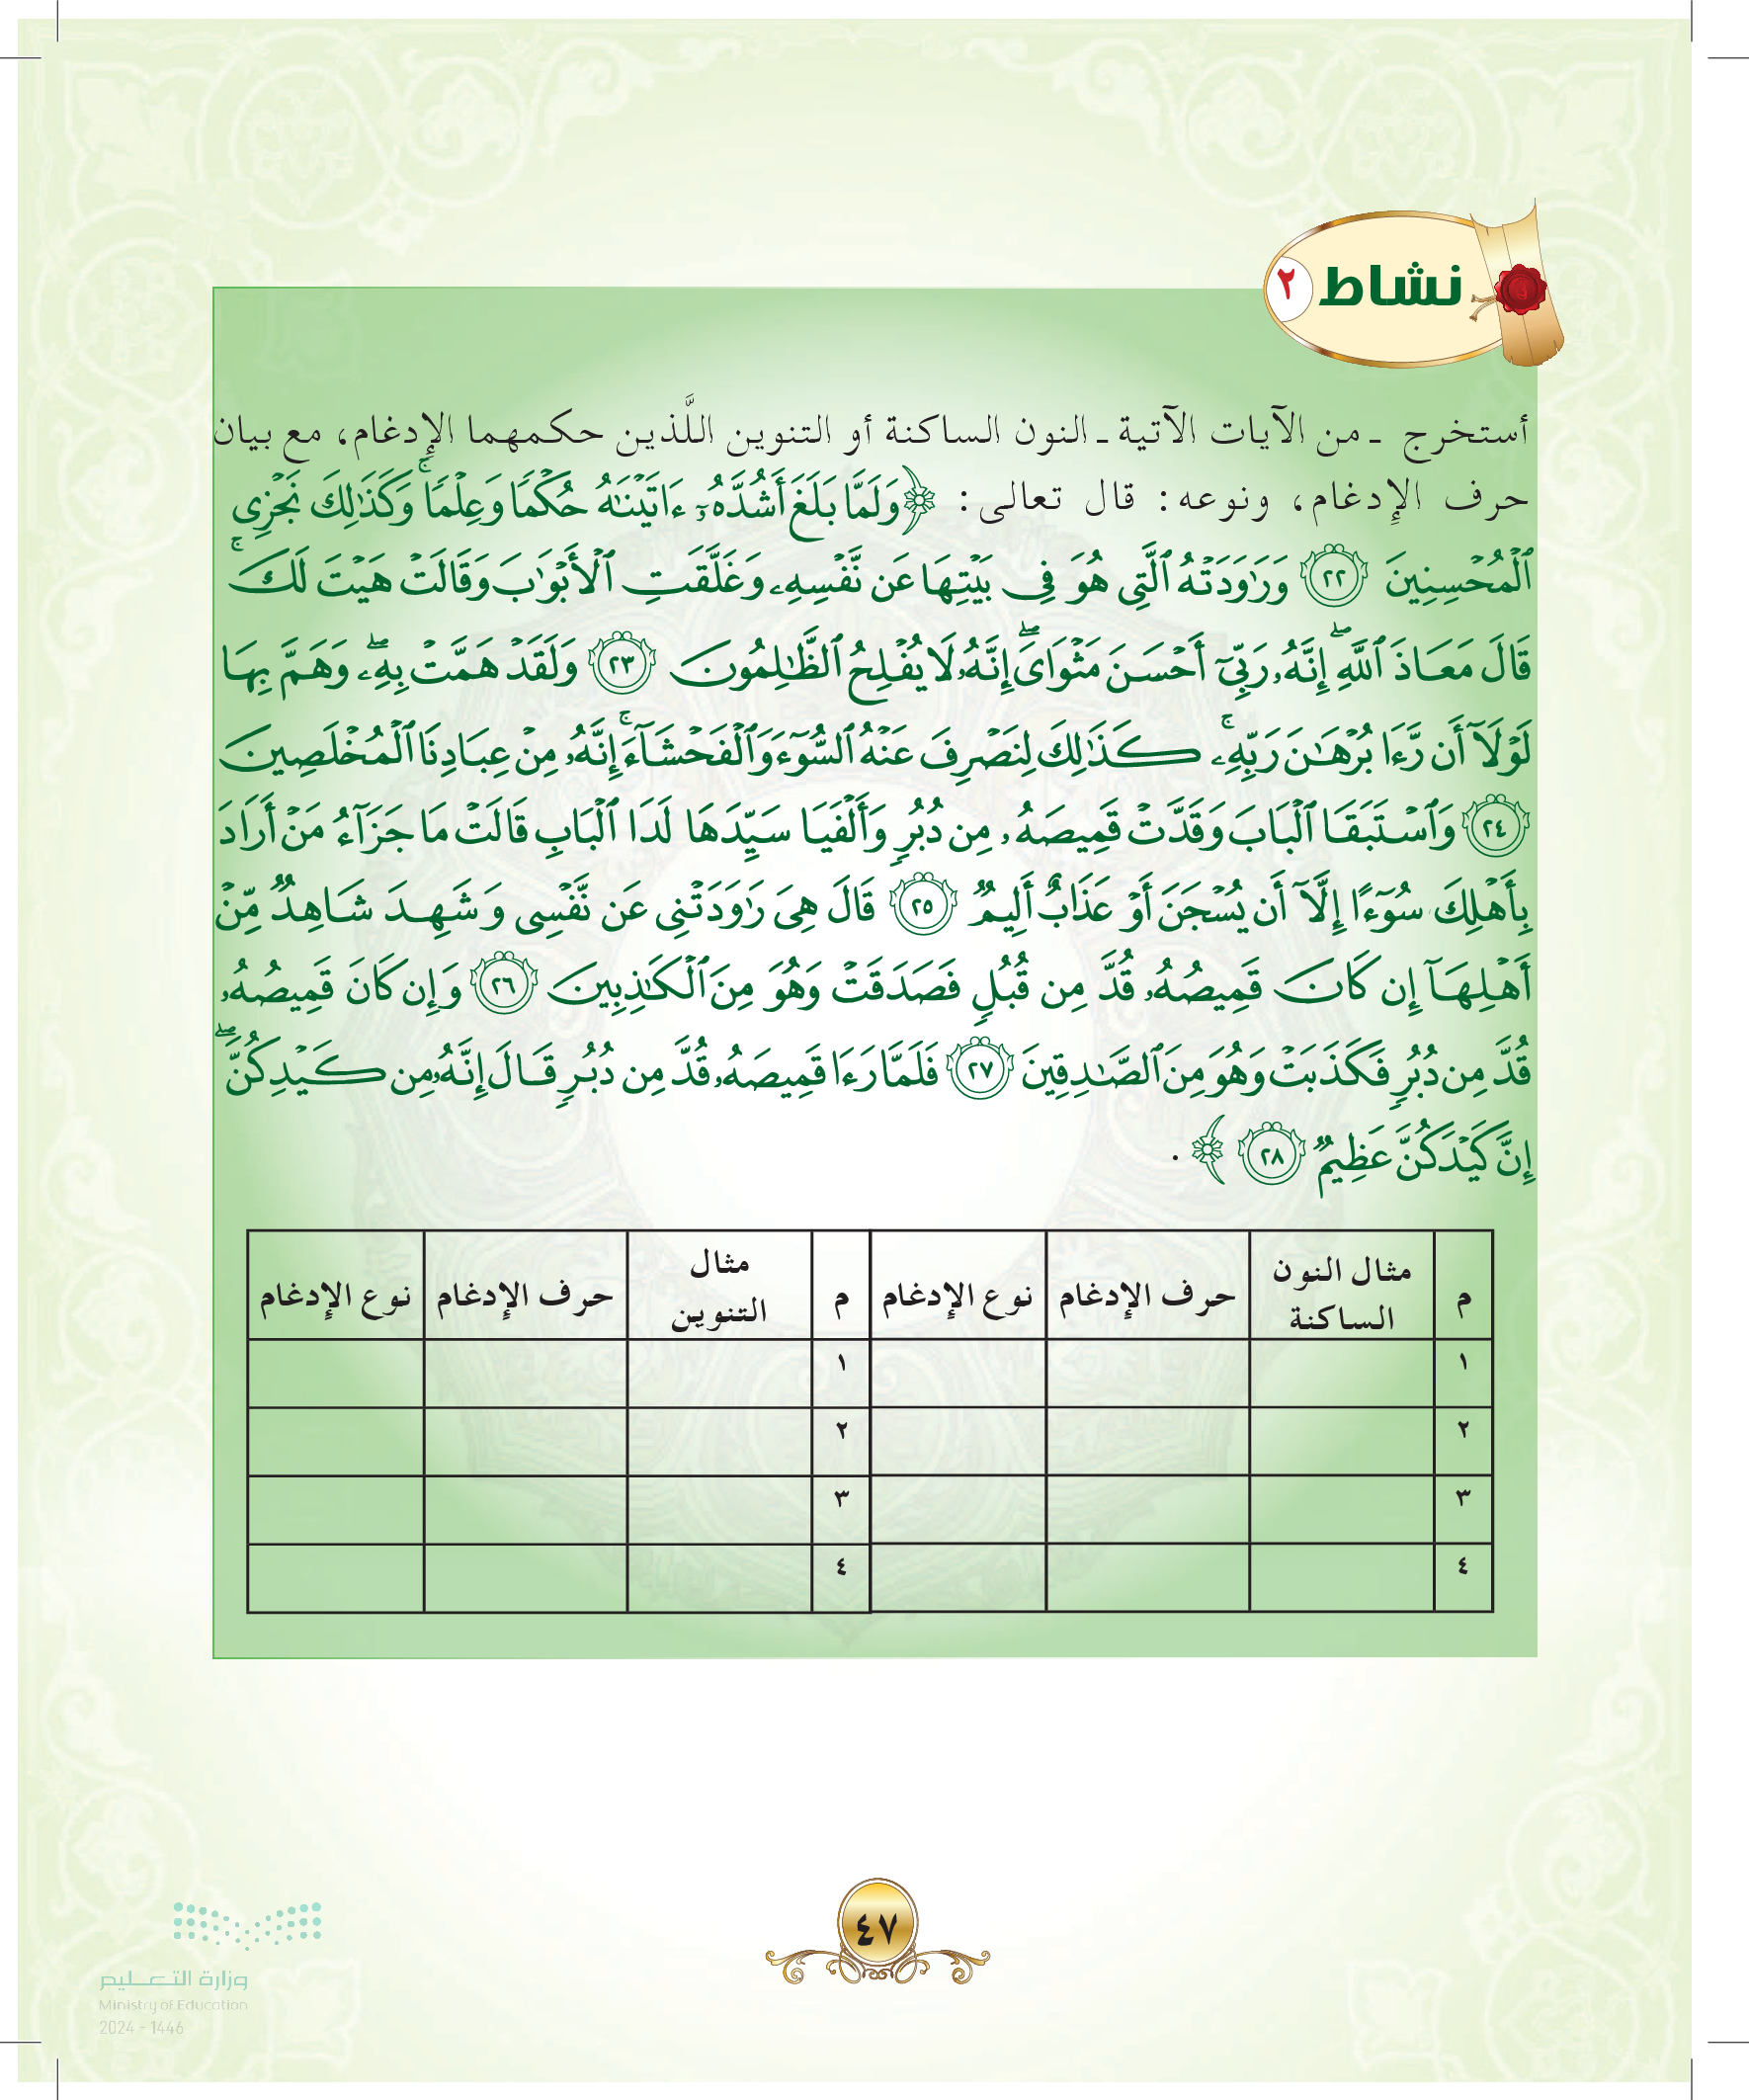 نشاط ٢
أستخرج ـ من الآيات الآتية ـ النون الساكنة أو التنوين اللَّذين حكمهما الإدغام، مع بيان
حرف الإدغام، ونوعه: قال تعالى: ﴿وَلَمَّا بَلَغَ أَشُدَّهُۥٓ ءَاتَيۡنَٰهُ حُكۡمٗا وَعِلۡمٗاۚ وَكَذَٰلِكَ نَجۡزِي
ٱلۡمُحۡسِنِينَ ٢٢ وَرَٰوَدَتۡهُ ٱلَّتِي هُوَ فِي بَيۡتِهَا عَن نَّفۡسِهِۦ وَغَلَّقَتِ ٱلۡأَبۡوَٰبَ وَقَالَتۡ هَيۡتَ لَكَۚ
قَالَ مَعَاذَ ٱللَّهِۖ إِنَّهُۥ رَبِّيٓ أَحۡسَنَ مَثۡوَايَۖ إِنَّهُۥ لَا يُفۡلِحُ ٱلظَّٰلِمُونَ ٢٣ وَلَقَدۡ هَمَّتۡ بِهِۦۖ وَهَمَّ بِهَا
لَوۡلَآ أَن رَّءَا بُرۡهَٰنَ رَبِّهِۦۚ كَذَٰلِكَ لِنَصۡرِفَ عَنۡهُ ٱلسُّوٓءَ وَٱلۡفَحۡشَآءَۚ إِنَّهُۥ مِنۡ عِبَادِنَا ٱلۡمُخۡلَصِينَ
٢٤ وَٱسۡتَبَقَا ٱلۡبَابَ وَقَدَّتۡ قَمِيصَهُۥ مِن دُبُرٖ وَأَلۡفَيَا سَيِّدَهَا لَدَا ٱلۡبَابِۚ قَالَتۡ مَا جَزَآءُ مَنۡ أَرَادَ
بِأَهۡلِكَ سُوٓءًا إِلَّآ أَن يُسۡجَنَ أَوۡ عَذَابٌ أَلِيمٞ ٢٥ قَالَ هِيَ رَٰوَدَتۡنِي عَن نَّفۡسِيۚ وَشَهِدَ شَاهِدٞ مِّنۡ
أَهۡلِهَآ إِن كَانَ قَمِيصُهُۥ قُدَّ مِن قُبُلٖ فَصَدَقَتۡ وَهُوَ مِنَ ٱلۡكَٰذِبِينَ ٢٦ وَإِن كَانَ قَمِيصُهُۥ
قُدَّ مِن دُبُرٖ فَكَذَبَتۡ وَهُوَ مِنَ ٱلصَّٰدِقِينَ ٢٧ فَلَمَّا رَءَا قَمِيصَهُۥ قُدَّ مِن دُبُرٖ قَالَ إِنَّهُۥ مِن كَيۡدِكُنَّۖ
إِنَّ كَيۡدَكُنَّ عَظِيمٞ ٢٨ ﴾ .
م مثال النون الساكنة حرف الإدغام نوع الإدغام م مثال التنوين حرف الإدغام نوع الإدغام
١ ١
٢ ٢
٣ ٣
٤ ٤
٤٧
وزارة التعليم
Ministry of Education
2024 - 1446